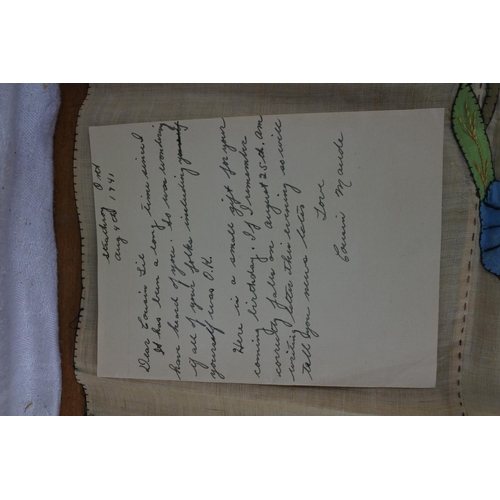 Aug 4th, 1941
Dear Cousin Lil
It has been a long time since I
have heard of you. So was wondering
if all of your folks including
yourself was O.K.
Here is a small gift for your
coming birthday. If I remember
correctly falls on august 25th. am
writing letter this evening so will
tell you news later
Love
Cousin Maude